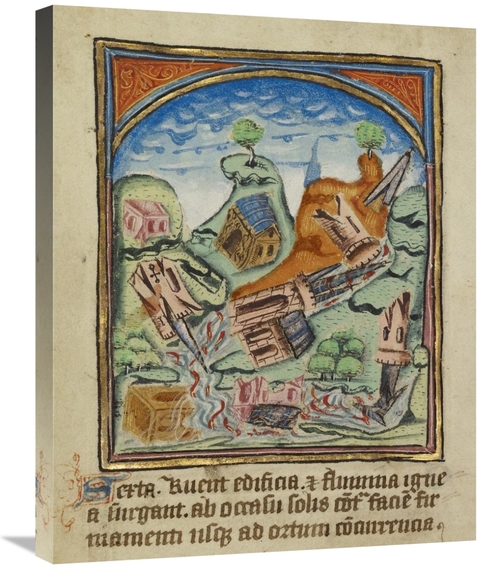 Sexta. Ruent edificia. ⁊ flumina igne
a surgant. ab occasu solis cōt͛ faciē fir
mamenti usq; ad ortum cōcurrencia.